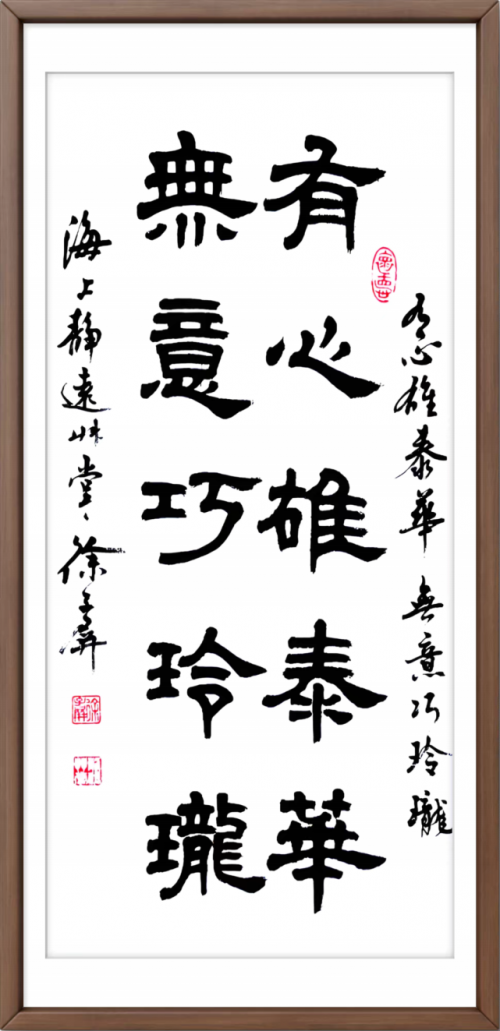 有心雄泰華 無意巧玲瓏
有心雄泰華
無意巧玲瓏
海上靜遠艸堂 徐